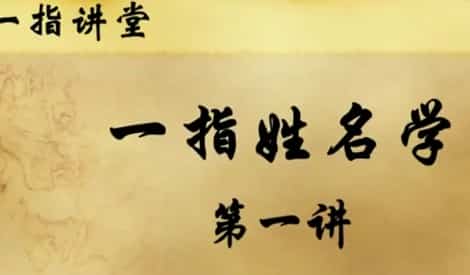 一指讲堂
一指姓名学
第一讲